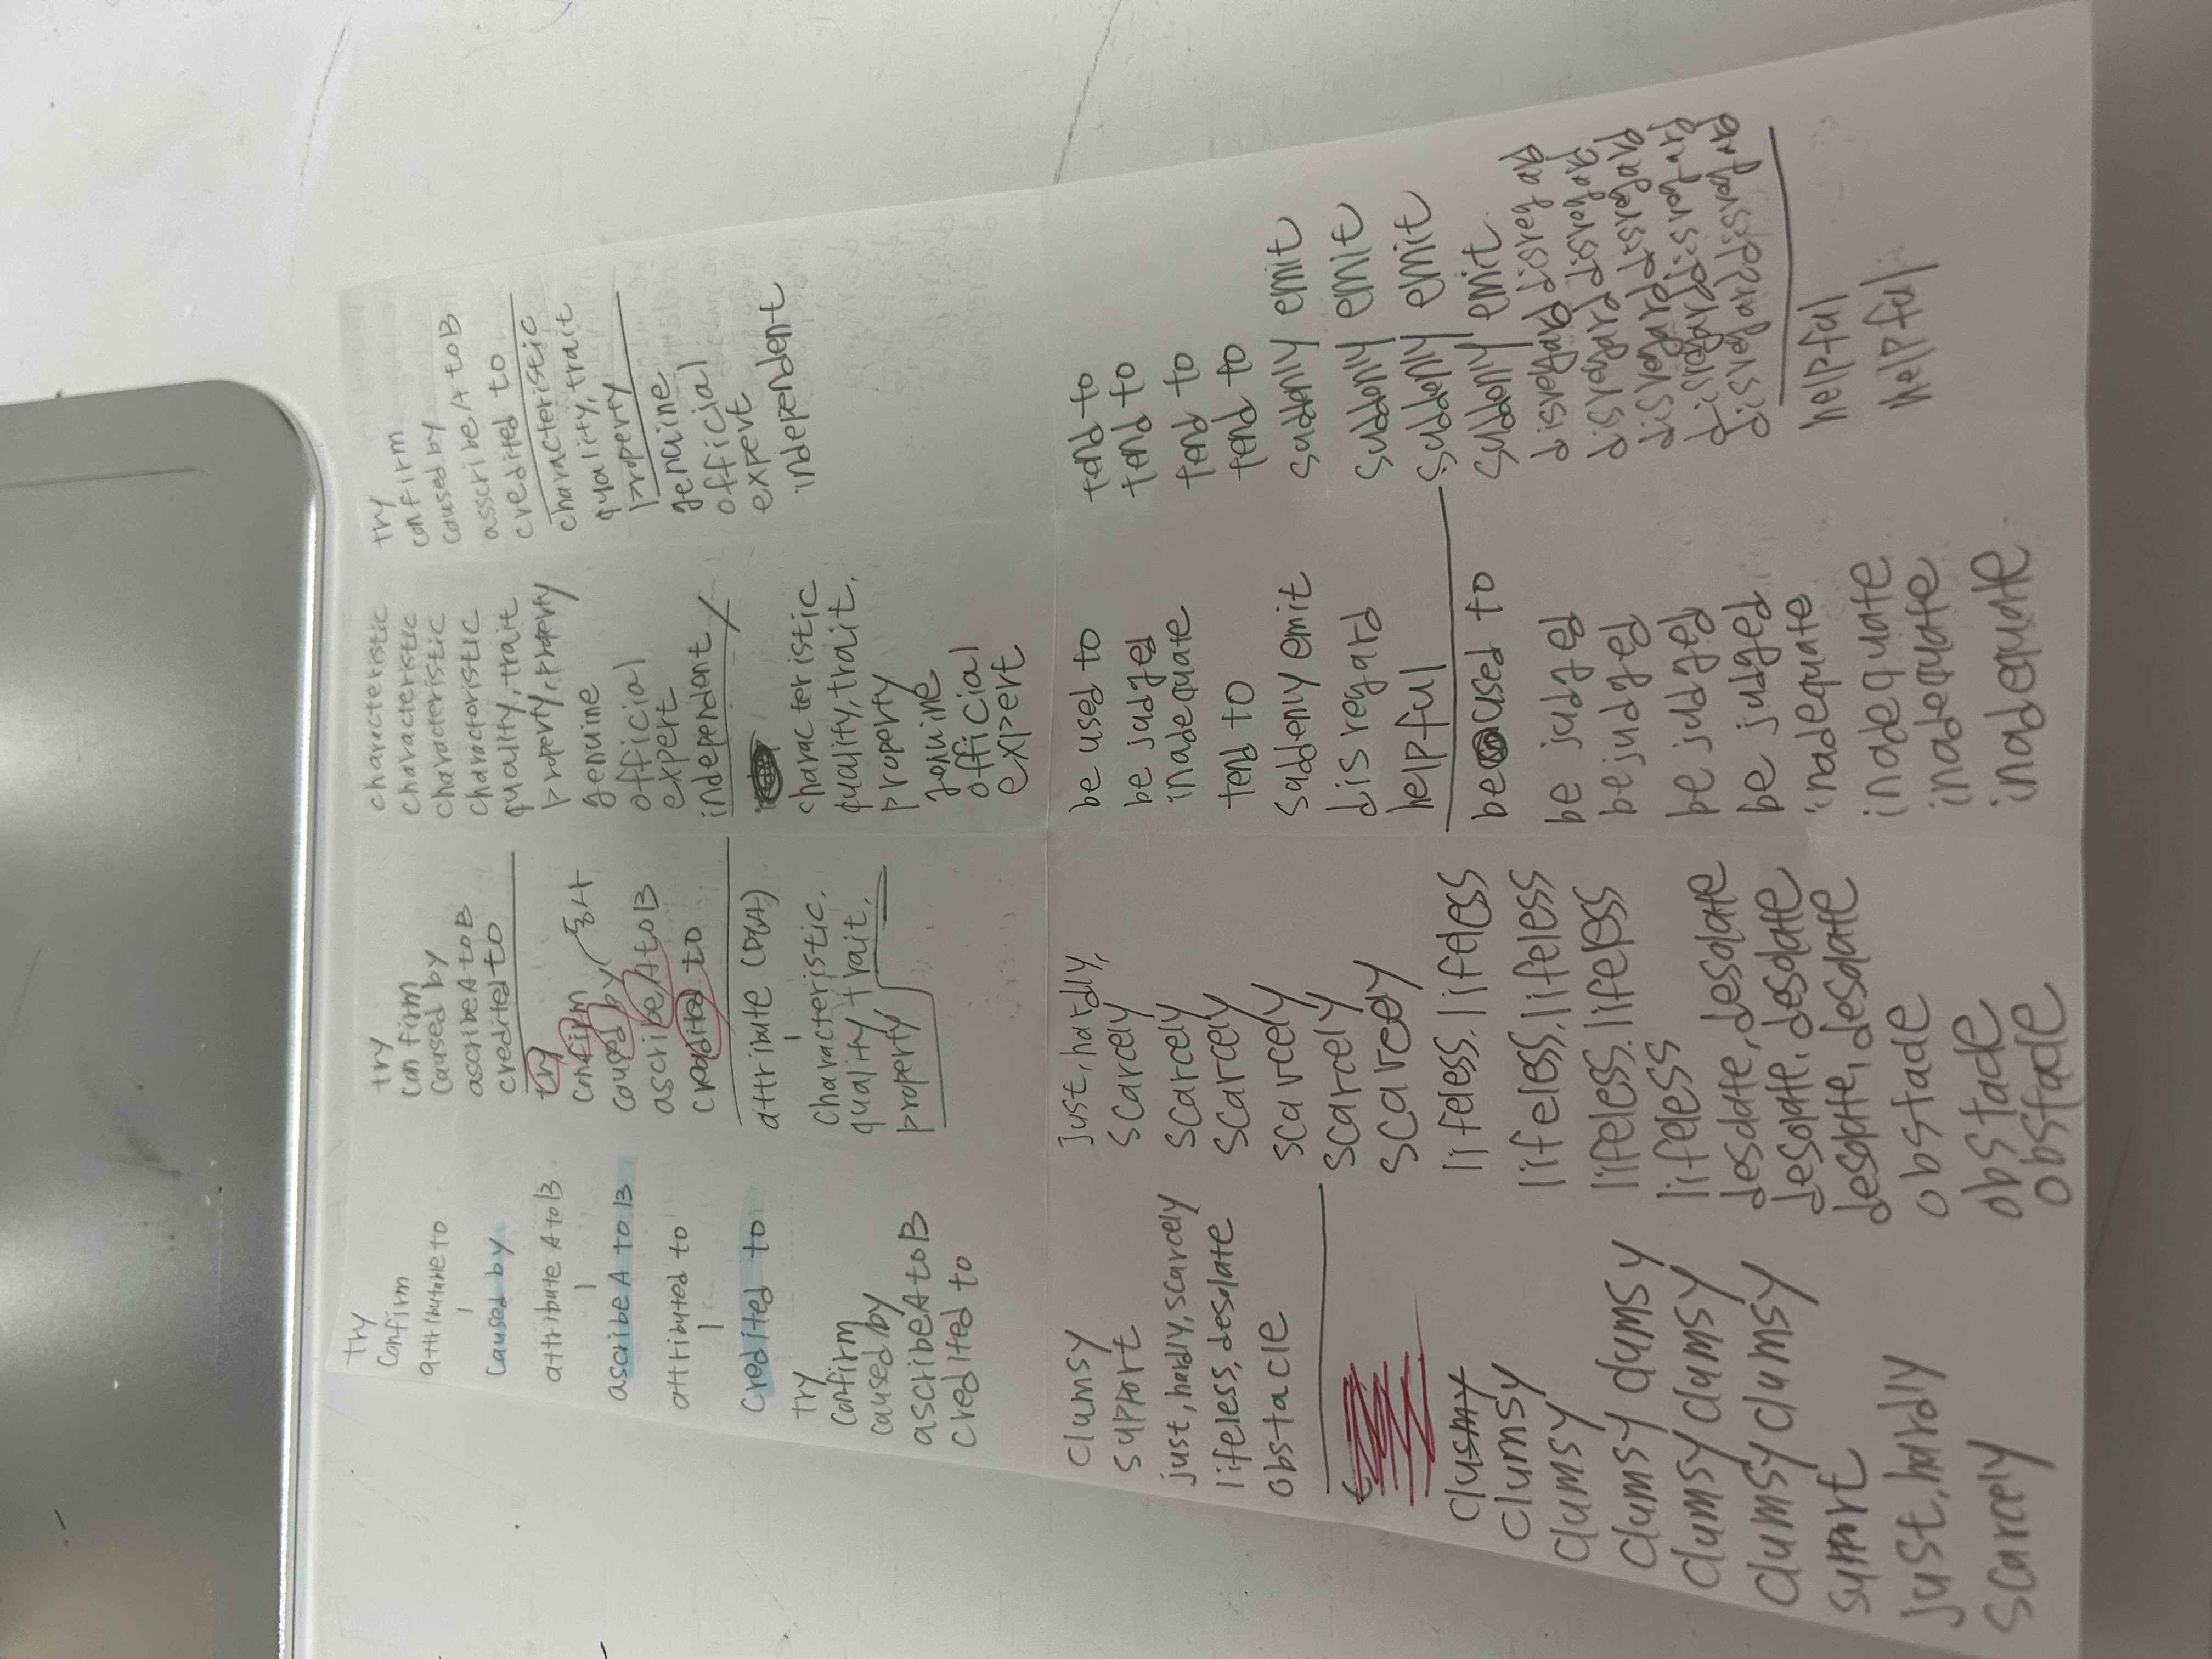 try
confirm
attribute to
caused by
attribute A to B
ascribe A to B
attributed to
credited to
try
confirm
caused by
ascribe A to B
credited to
try
confirm
caused by
ascribe A to B
credited to
try
confirm
caused by
ascribe A to B
credited to
attribute (명사)
characteristic.
quality, trait,
property
characteristic
characteristic
characteristic
characteristic
quality, trait
property, property
genuine
official
expert
independent
characteristic
quality, trait.
property
genuine
official
expert
try
confirm
caused by
asscribe A to B
credited to
characteristic
characteristic
quality, trait
property
genuine
official
expert
independent
clumsy
support
just, hardly, scarcely
lifeless, desolate
obstacle
clusmy
clumsy
clumsy
clumsy clumsy
clumsy clumsy
clumsy clumsy
support
just, hardly
scarcely
just, hardly,
scarcely
scarcely
scarcely
scarcely
scarcely
scarcely
lifeless. lifeless
lifeless. lifeless
lifeless. lifeless
lifeless
desolate, desolate
desolate, desolate
desolate, desolate
obstacle
obstacle
obstacle
be used to
be judged
inadequate
tend to
suddeny emit
disregard
helpful
be used to
be judged
be judged
be judged
be judged.
inadequate
inadequate
inadequate
inadequate
tend to
tend to
tend to
tend to
suddenly emit
suddenly emit
suddenly emit
suddenly emit
disregard disregard
disregard disregard
disregard disregard
disregard disregard
disregard disregard
helpful
helpful